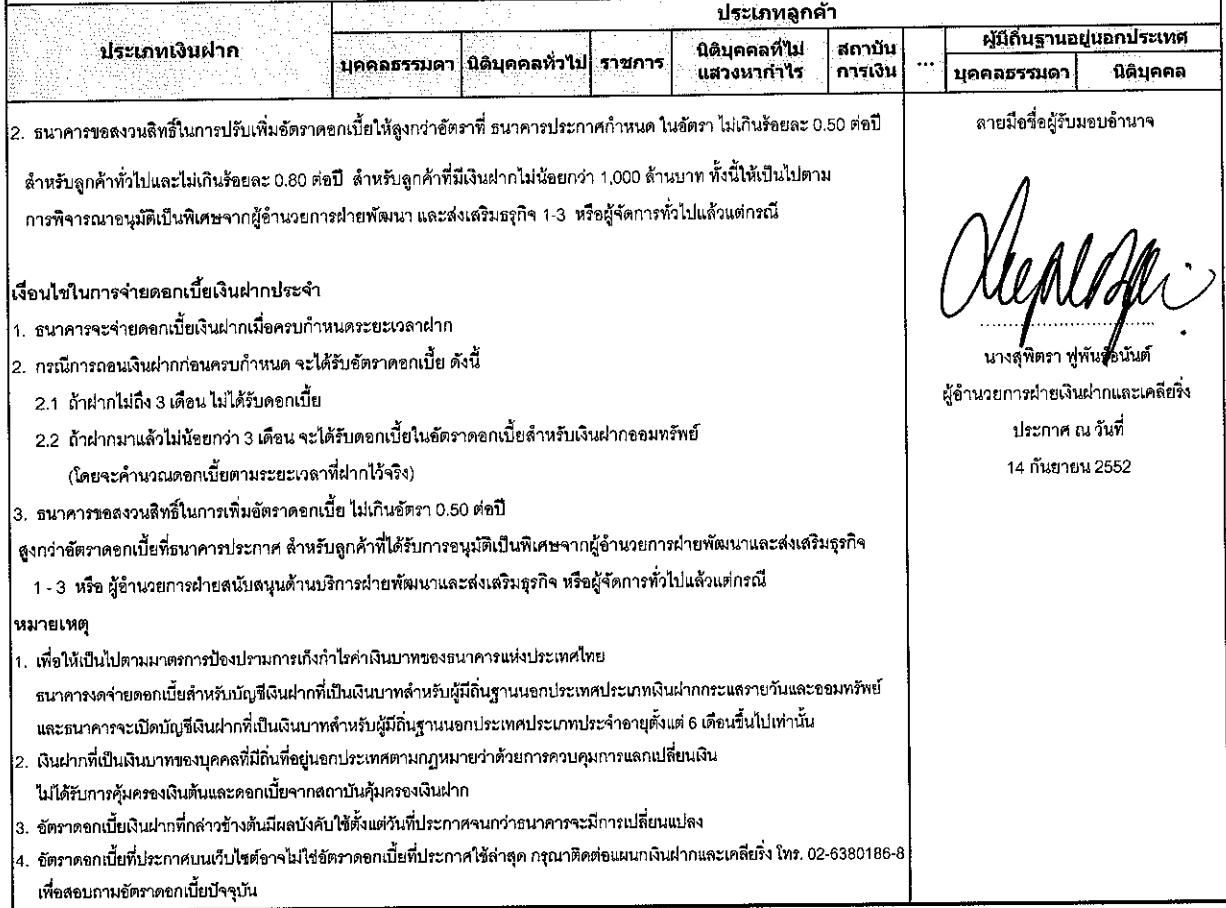 ประเภทเงินฝาก
ประเภทลูกค้า
บุคคลธรรมดา นิติบุคคลทั่วไป ราชการ นิติบุคคลที่ไม่แสวงหากำไร สถาบันการเงิน ... ผู้มีถิ่นฐานอยู่นอกประเทศ
บุคคลธรรมดา นิติบุคคล
2. ธนาคารขอสงวนสิทธิ์ในการปรับเพิ่มอัตราดอกเบี้ยให้สูงกว่าอัตราที่ ธนาคารประกาศกำหนด ในอัตรา ไม่เกินร้อยละ 0.50 ต่อปี
สำหรับลูกค้าทั่วไปและไม่เกินร้อยละ 0.80 ต่อปี สำหรับลูกค้าที่มีเงินฝากไม่น้อยกว่า 1,000 ล้านบาท ทั้งนี้ให้เป็นไปตาม
การพิจารณาอนุมัติเป็นพิเศษจากผู้อำนวยการฝ่ายพัฒนา และส่งเสริมธุรกิจ 1-3 หรือผู้จัดการทั่วไปแล้วแต่กรณี
เงื่อนไขในการจ่ายดอกเบี้ยเงินฝากประจำ
1. ธนาคารจะจ่ายดอกเบี้ยเงินฝากเมื่อครบกำหนดระยะเวลาฝาก
2. กรณีการถอนเงินฝากก่อนครบกำหนด จะได้รับอัตราดอกเบี้ย ดังนี้
2.1 ถ้าฝากไม่ถึง 3 เดือน ไม่ได้รับดอกเบี้ย
2.2 ถ้าฝากมาแล้วไม่น้อยกว่า 3 เดือน จะได้รับดอกเบี้ยในอัตราดอกเบี้ยสำหรับเงินฝากออมทรัพย์
(โดยจะคำนวณดอกเบี้ยตามระยะเวลาที่ฝากไว้จริง)
3. ธนาคารขอสงวนสิทธิ์ในการเพิ่มอัตราดอกเบี้ย ไม่เกินอัตรา 0.50 ต่อปี
สูงกว่าอัตราดอกเบี้ยที่ธนาคารประกาศ สำหรับลูกค้าที่ได้รับการอนุมัติเป็นพิเศษจากผู้อำนวยการฝ่ายพัฒนาและส่งเสริมธุรกิจ
1 - 3 หรือ ผู้อำนวยการฝ่ายสนับสนุนด้านบริการฝ่ายพัฒนาและส่งเสริมธุรกิจ หรือผู้จัดการทั่วไปแล้วแต่กรณี
หมายเหตุ
1. เพื่อให้เป็นไปตามมาตรการป้องปรามการเก็งกำไรค่าเงินบาทของธนาคารแห่งประเทศไทย
ธนาคารงดจ่ายดอกเบี้ยสำหรับบัญชีเงินฝากที่เป็นเงินบาทสำหรับผู้มีถิ่นฐานนอกประเทศประเภทเงินฝากกระแสรายวันและออมทรัพย์
และธนาคารจะเปิดบัญชีเงินฝากที่เป็นเงินบาทสำหรับผู้มีถิ่นฐานนอกประเทศประเภทประจำอายุตั้งแต่ 6 เดือนขึ้นไปเท่านั้น
2. เงินฝากที่เป็นเงินบาทของบุคคลที่มีถิ่นที่อยู่นอกประเทศตามกฎหมายว่าด้วยการควบคุมการแลกเปลี่ยนเงิน
ไม่ได้รับการคุ้มครองเงินต้นและดอกเบี้ยจากสถาบันคุ้มครองเงินฝาก
3. อัตราดอกเบี้ยเงินฝากที่กล่าวข้างต้นมีผลบังคับใช้ตั้งแต่วันที่ประกาศจนกว่าธนาคารจะมีการเปลี่ยนแปลง
4. อัตราดอกเบี้ยที่ประกาศบนเว็บไซต์อาจไม่ใช่อัตราดอกเบี้ยที่ประกาศใช้ล่าสุด กรุณาติดต่อแผนกเงินฝากและเคลียริ่ง โทร. 02-6380186-8
เพื่อสอบถามอัตราดอกเบี้ยปัจจุบัน
ลายมือชื่อผู้รับมอบอำนาจ
นางสุพิตรา
ผู้อำนวยการฝ่ายเงินฝากและเคลียริ่ง
ประกาศ ณ วันที่
14 กันยายน 2552